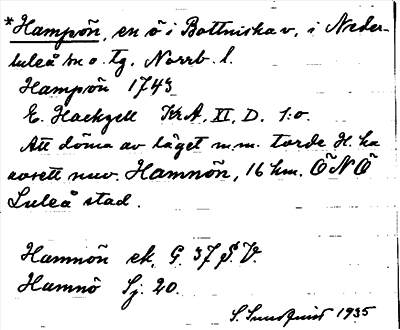 *Hampön, en ö i Bottniska v., i Neder-
luleå sn o. tg. Norrb. l.
Hampön 1743
E. Hackzell KrA, XI, D. 1:o.
Att döma av läget m.m. torde H. ha
avsett nuv. Hamnön, 16 km. ÖNÖ
Luleå stad.
Hamnön ek. G. 37 S.V.
Hamnö Sj. 20.
S. Sundqvist 1935